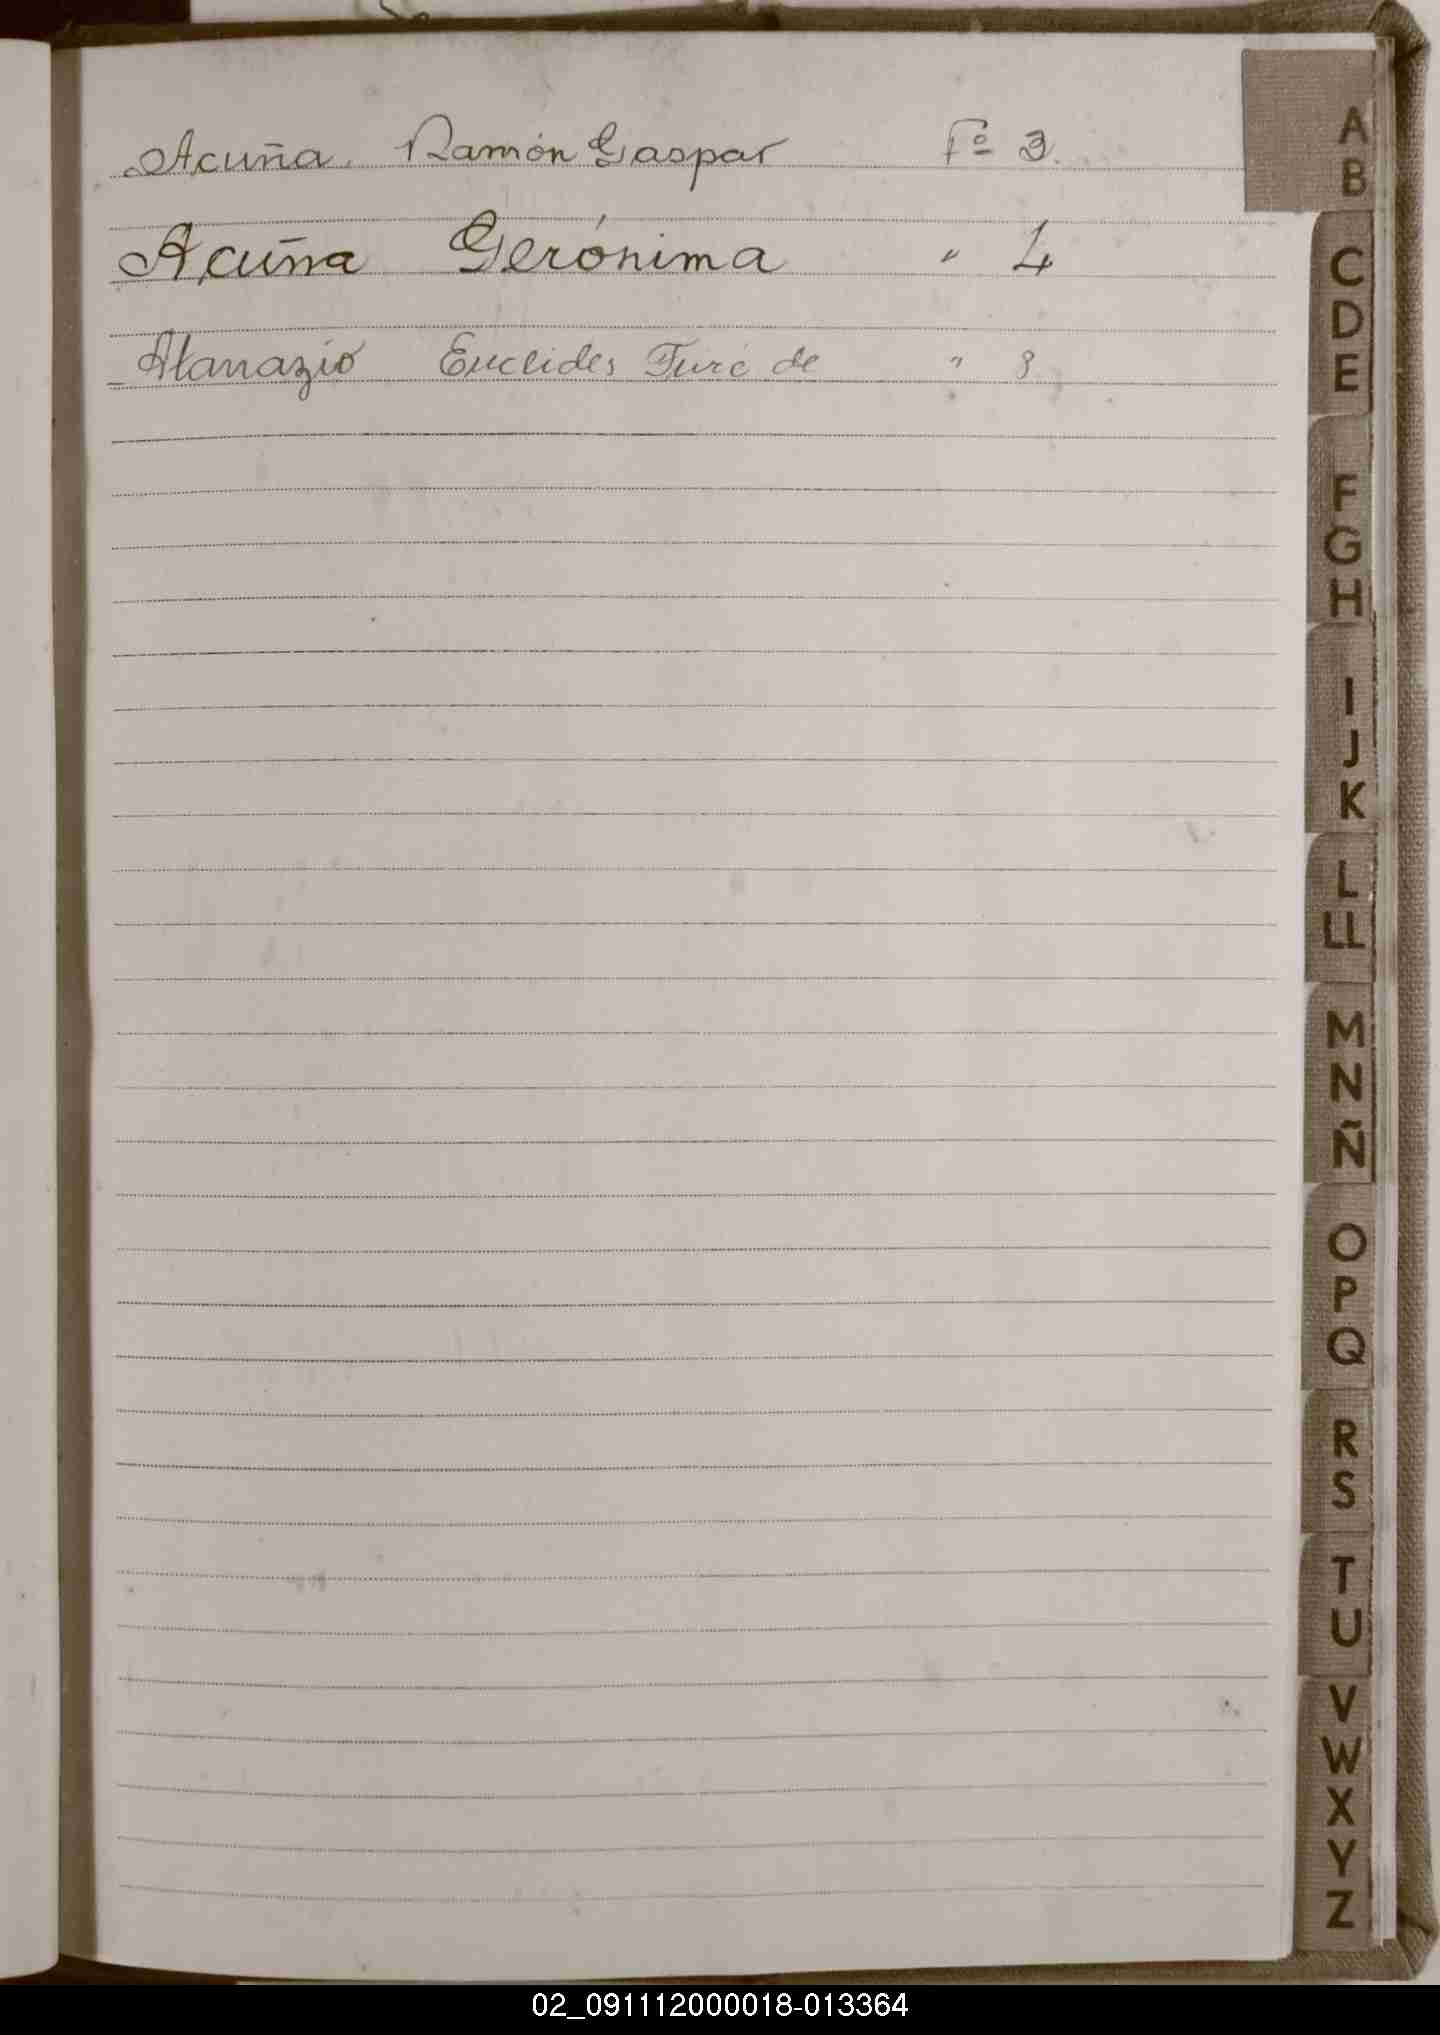 Acuña. Ramón Gaspar Fº 3
Acuña Gerónima " 4
Atanazio Euclides Turé de " 8
A
B
C
D
E
F
G
H
I
J
K
L
LL
M
N
Ñ
O
P
Q
R
S
T
U
V
W
X
Y
Z
02_091112000018-013364